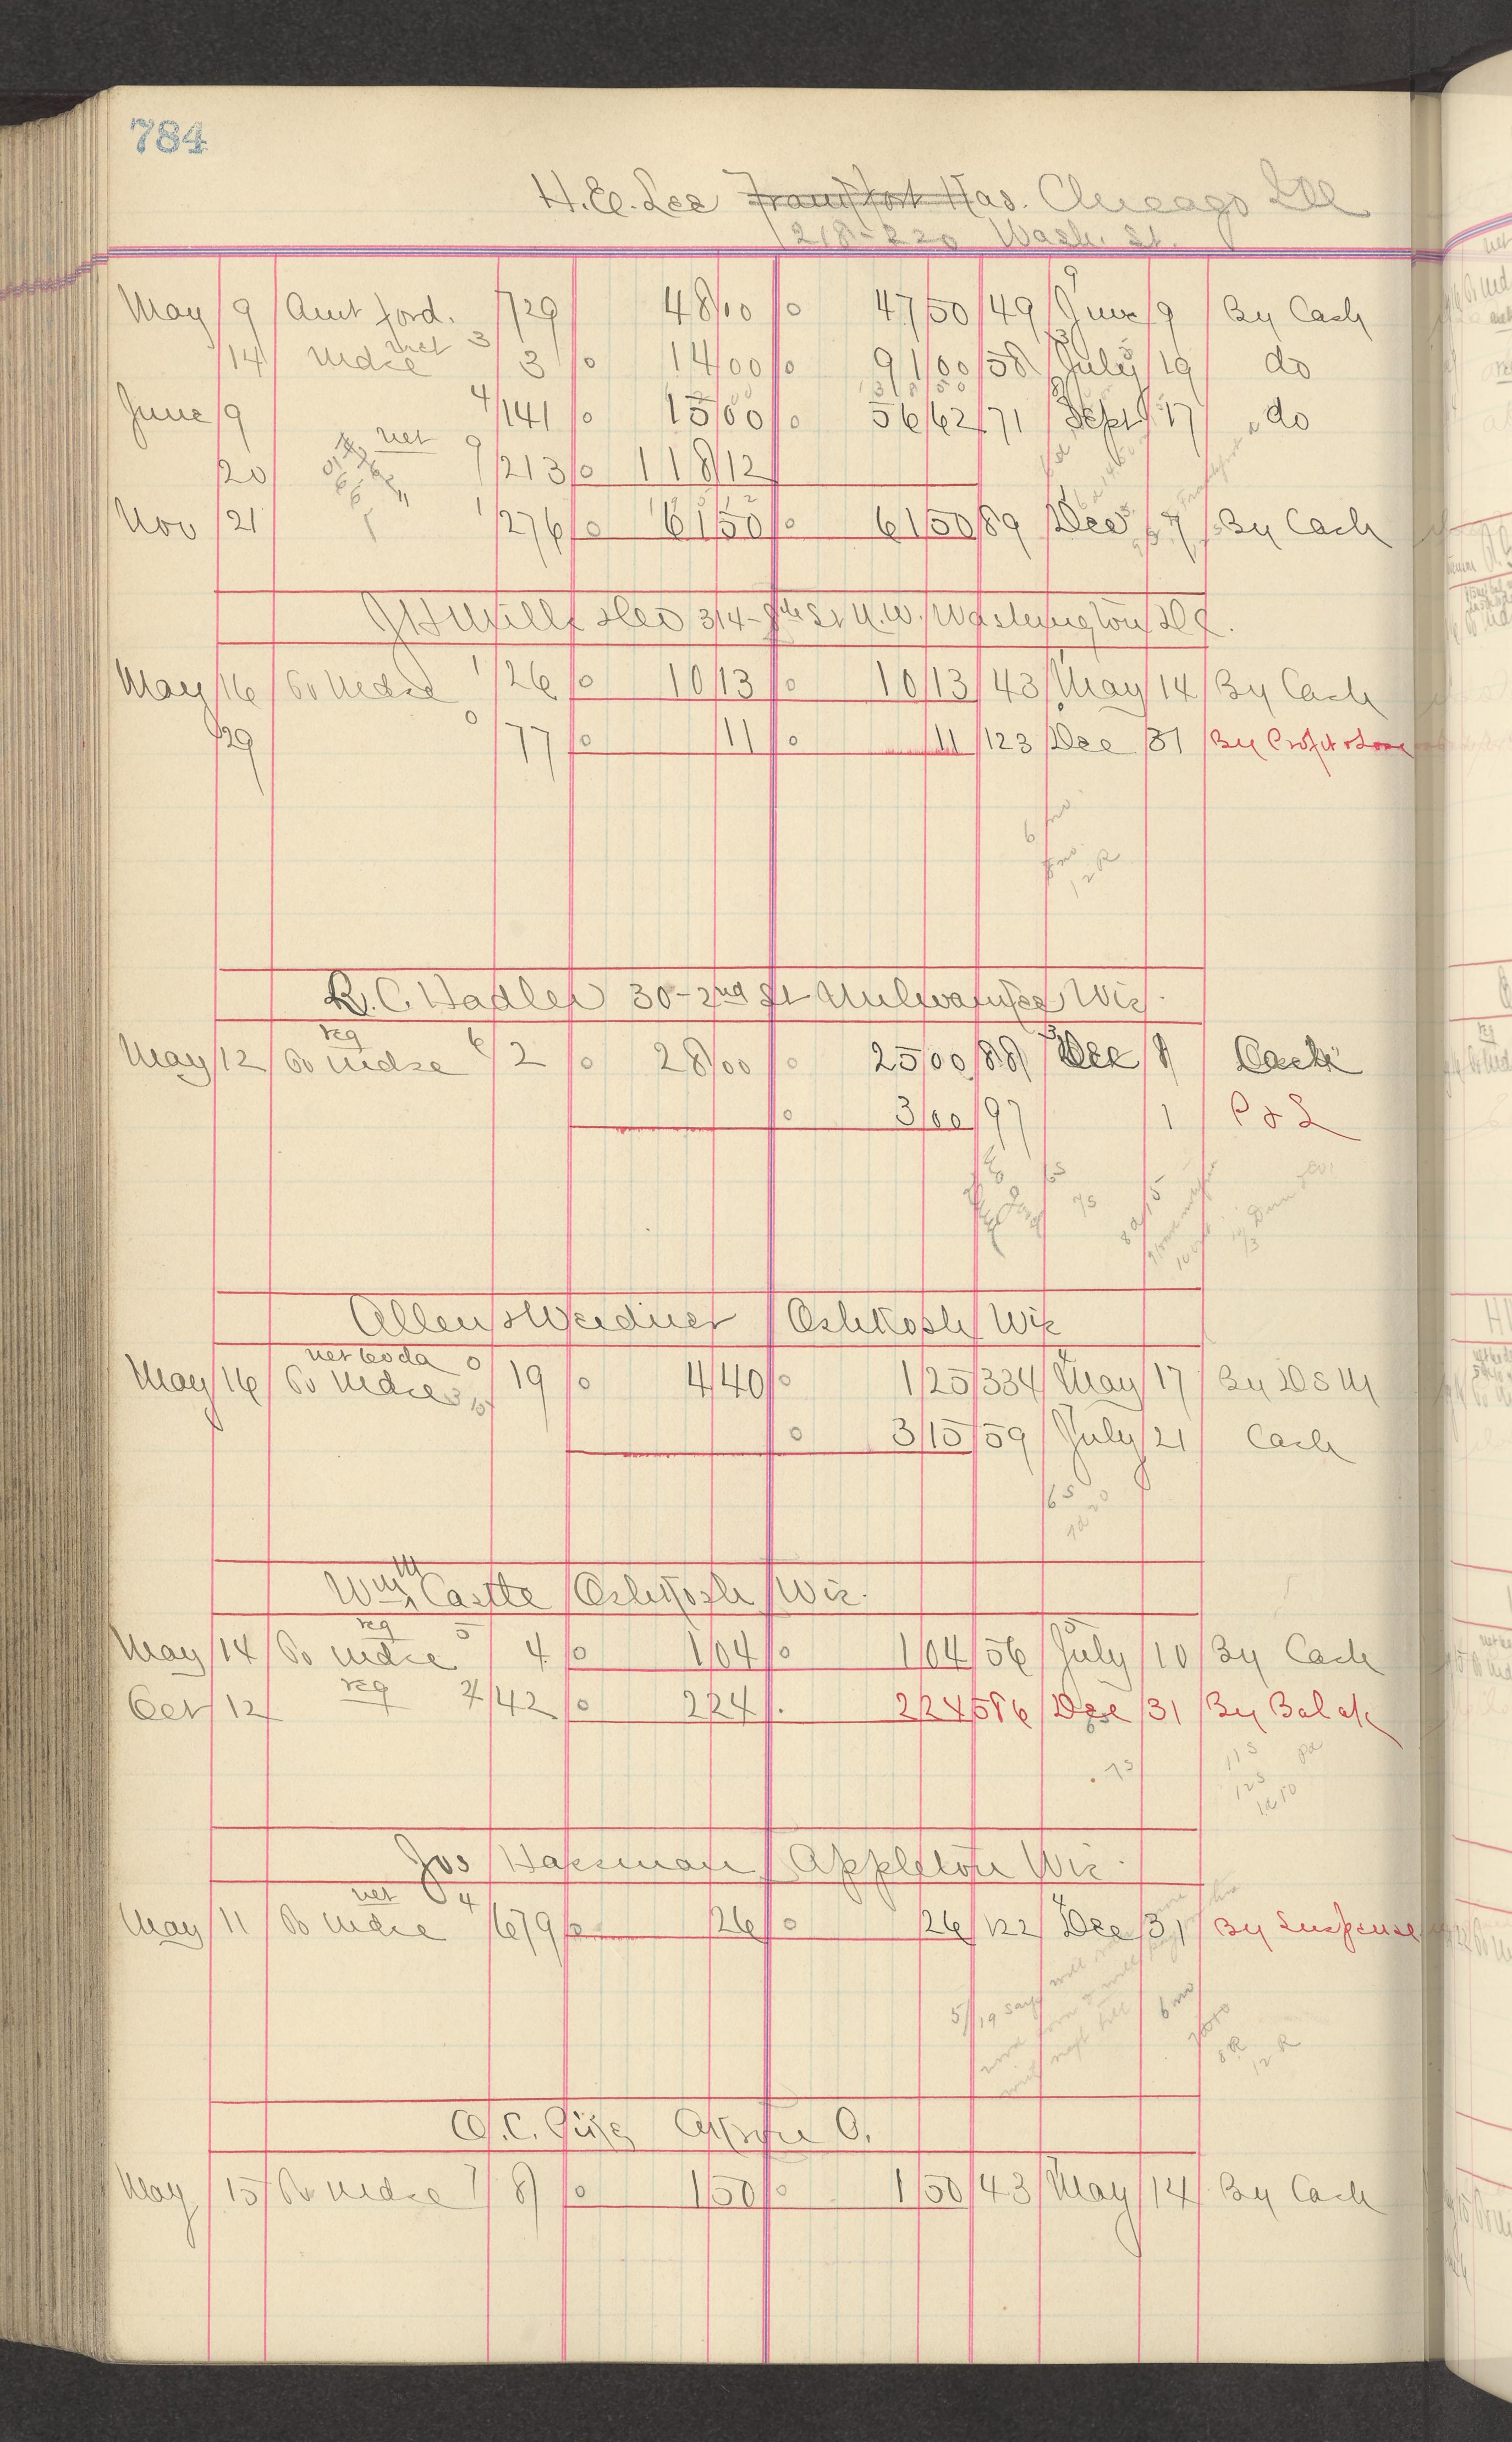 784
H.E. Lee Frankfort Kas. Chicago Ill
218-220 Wash. St.
May 9 Amt ford. 729 48 00 47 50 49 June 9 By Cash
14 Mdse net 3 3 14 00 91 00 58 July 19 do
June 9 4 141 15 00 56 62 71 Sept 17 do
20 net 9 213 118 12
Nov 21 1 276 61 50 61 50 89 Dec 7 By Cash
314-8th St N.W. Washington D.C.
May 16 To Mdse 1 26 10 13 10 13 43 May 14 By Cash
29 0 77 11 11 123 Dec 31 By Profit & Loss
6 mo
8 mo
12 R
R.C. Hadler 30-2nd St Milwaukee Wis.
May 12 To Mdse reg 6 2 28 00 25 00 88 Dec 8 Cash
3 00 97 1 P & L
Allen & Weidner Oshkosh Wis
net to da 0
May 16 To Mdse 19 4 40 1 25 334 May 17 By D S M
3 15 59 July 21 Cash
6 s
Wm M Castle Oshkosh Wis.
reg 5
May 14 To Mdse 4 1 04 1 04 56 July 10 By Cash
Oct 12 reg 2 42 2 24 2 24 586 Dec 31 By Bal a/c
7 s
11 s pd
12 s
Jos Hassman Appleton Wis.
net 4
May 11 To Mdse 679 26 26 122 Dec 31 By Suspense
5/19 says will
6 mo
8 R
12 R
O.C. Akron O.
May 15 To Mdse 7 8 1 50 1 50 43 May 14 By Cash